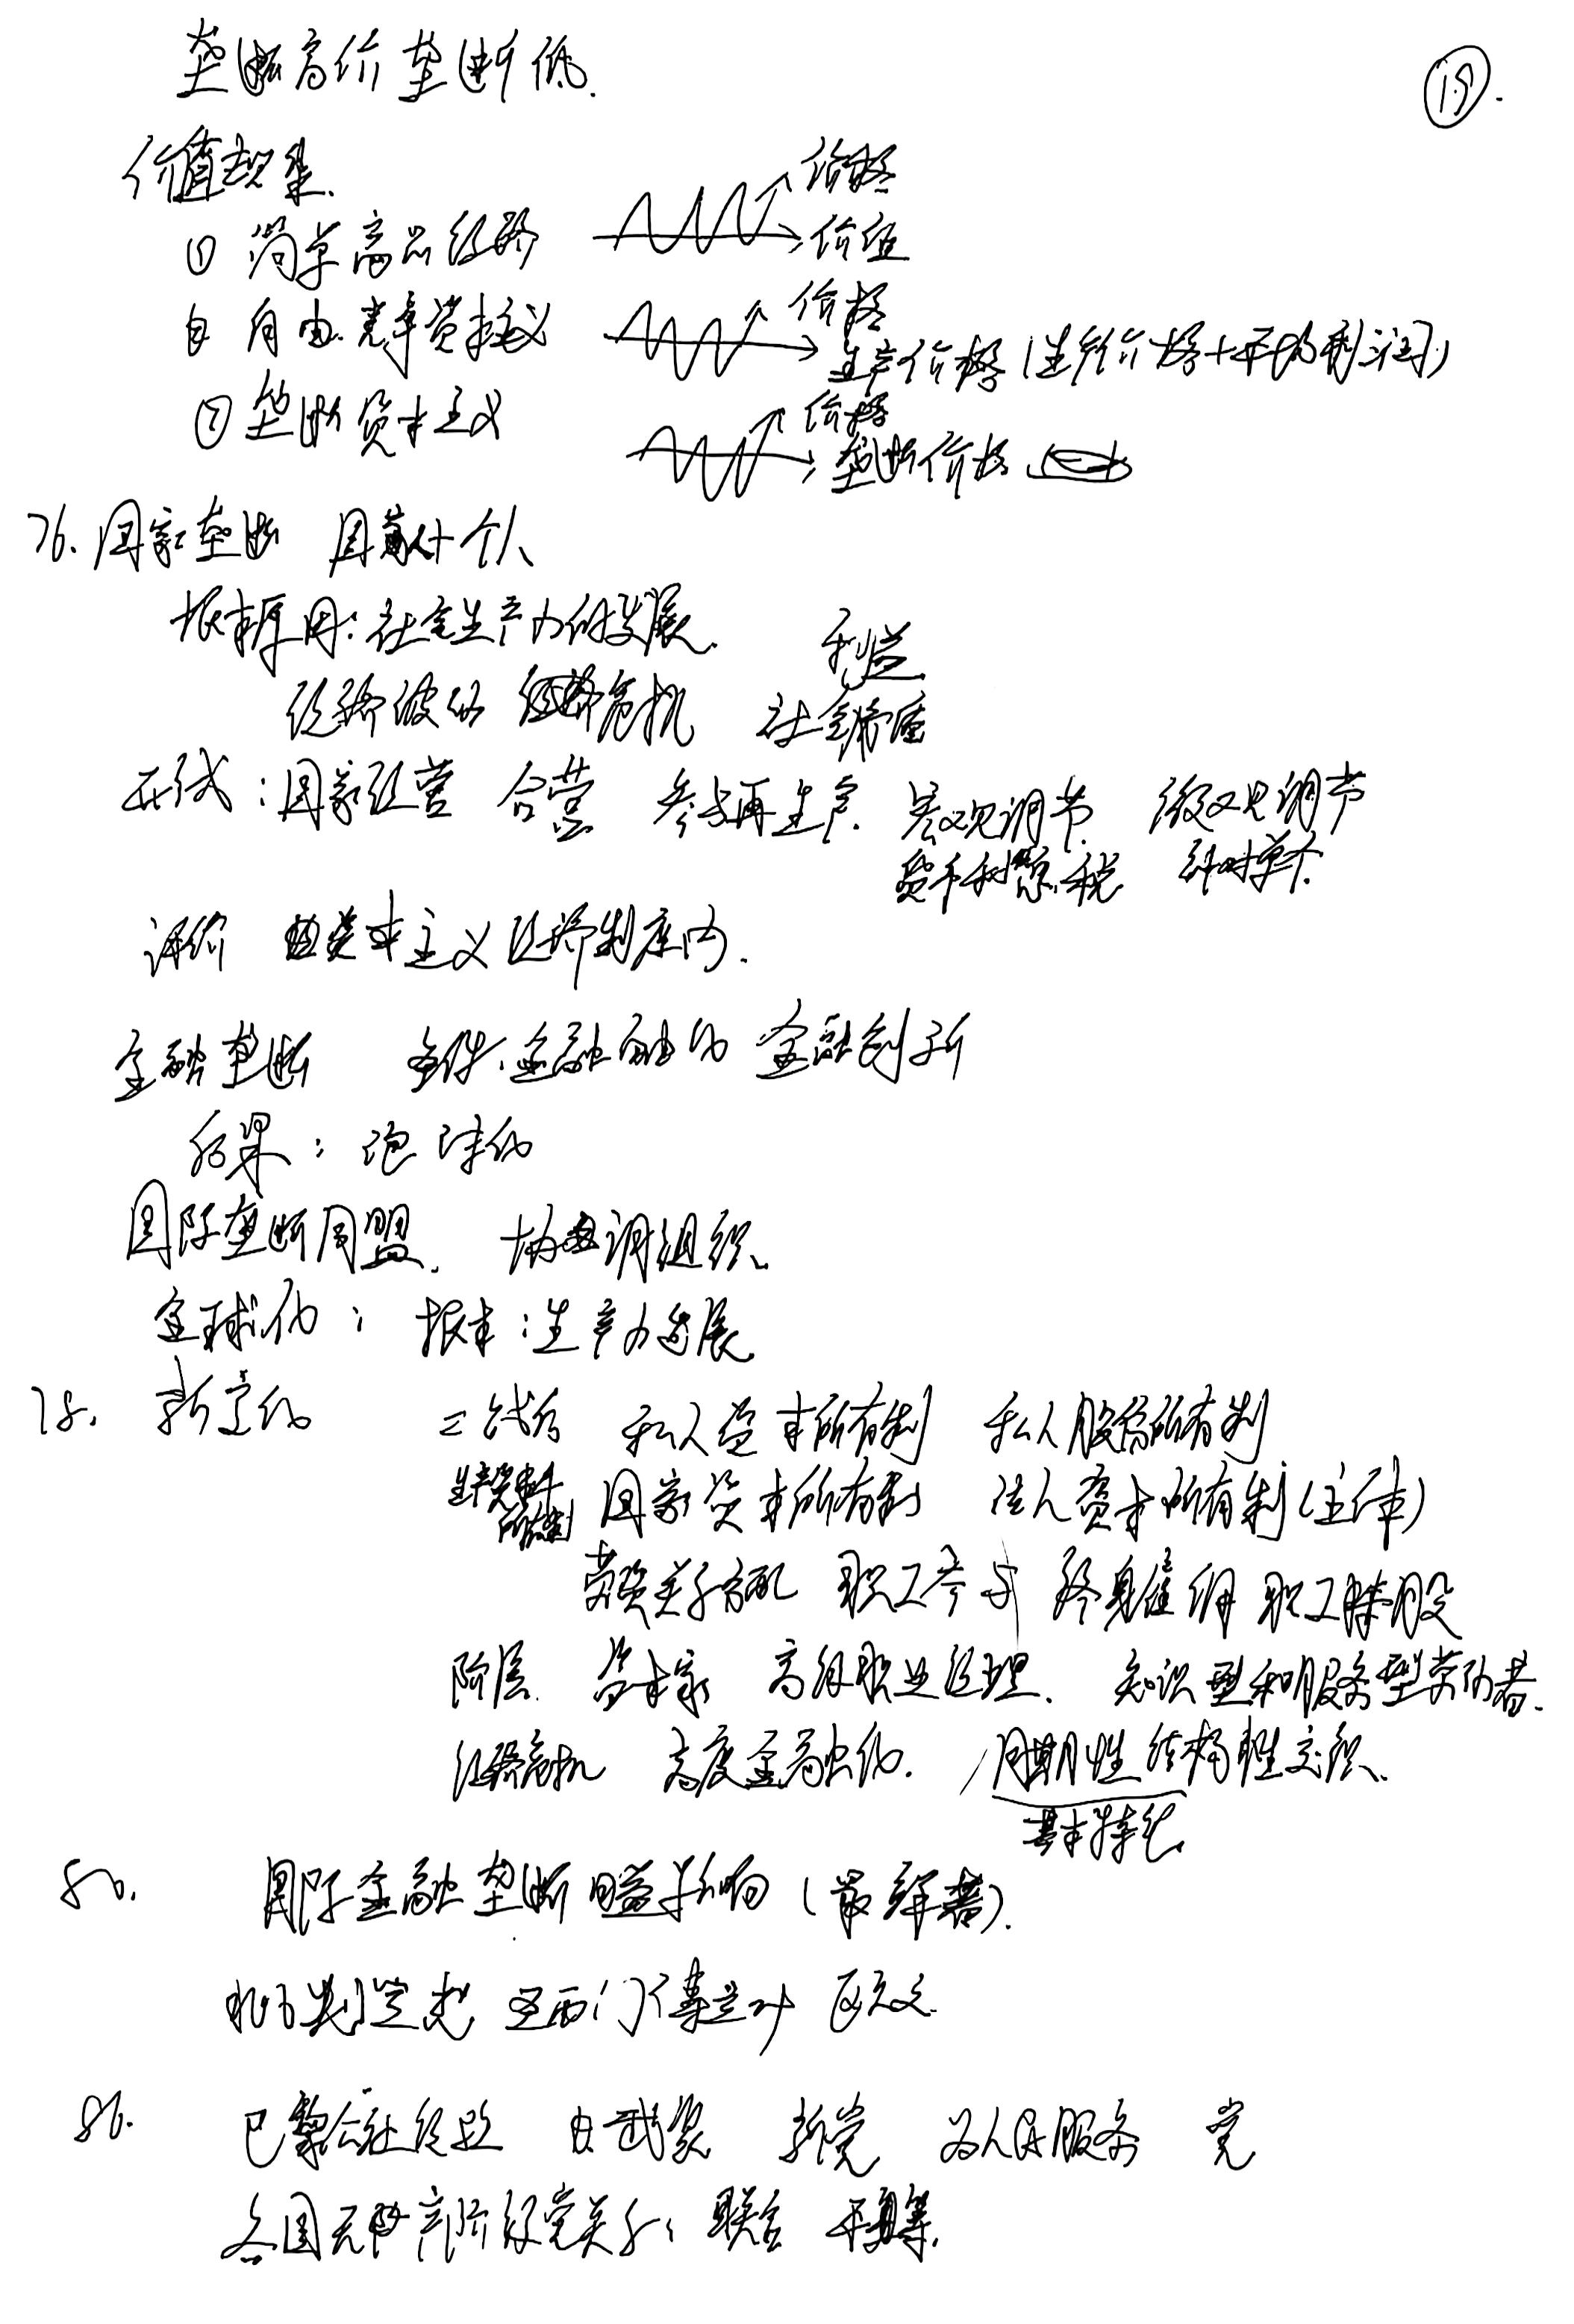 垄断高价 垄断低.
15.
价值规律.
① 简单商品经济 价格 价值
自由竞争资本主义 价格 生产价格(生产价格+平均利润)
② 垄断资本主义 价格 垄断价格
76. 国家垄断 国家+个人
根本原因:社会生产力的发展. 利益
经济波动 经济危机 社会
形式:国家经营 合营 参与再生产. 宏观调节. 微观调节
货币 利 税
评价 资本主义经济制度内.
金融垄断 条件:金融自由化 金融创新
后果:泡沫化
国际垄断同盟. 协调组织.
全球化:根本:生产力发展
78. 新变化 二战后 私人资本所有制 私人股份所有制
生产资料所有制 国家资本所有制 法人资本所有制(主体)
劳资关系分配 职工参与 终身雇佣 职工持股
阶层. 资本家 高级职业经理. 知识型和服务型劳动者.
经济危机 高度金融化. 周期性 结构性交织.
基本特征
80. 国际金融垄断日益影响(最显著).
圣西门 傅立叶 欧文.
86. 巴黎公社经验 武装 新党 为人民服务 党
各国无产阶级党关系:联合 平等.